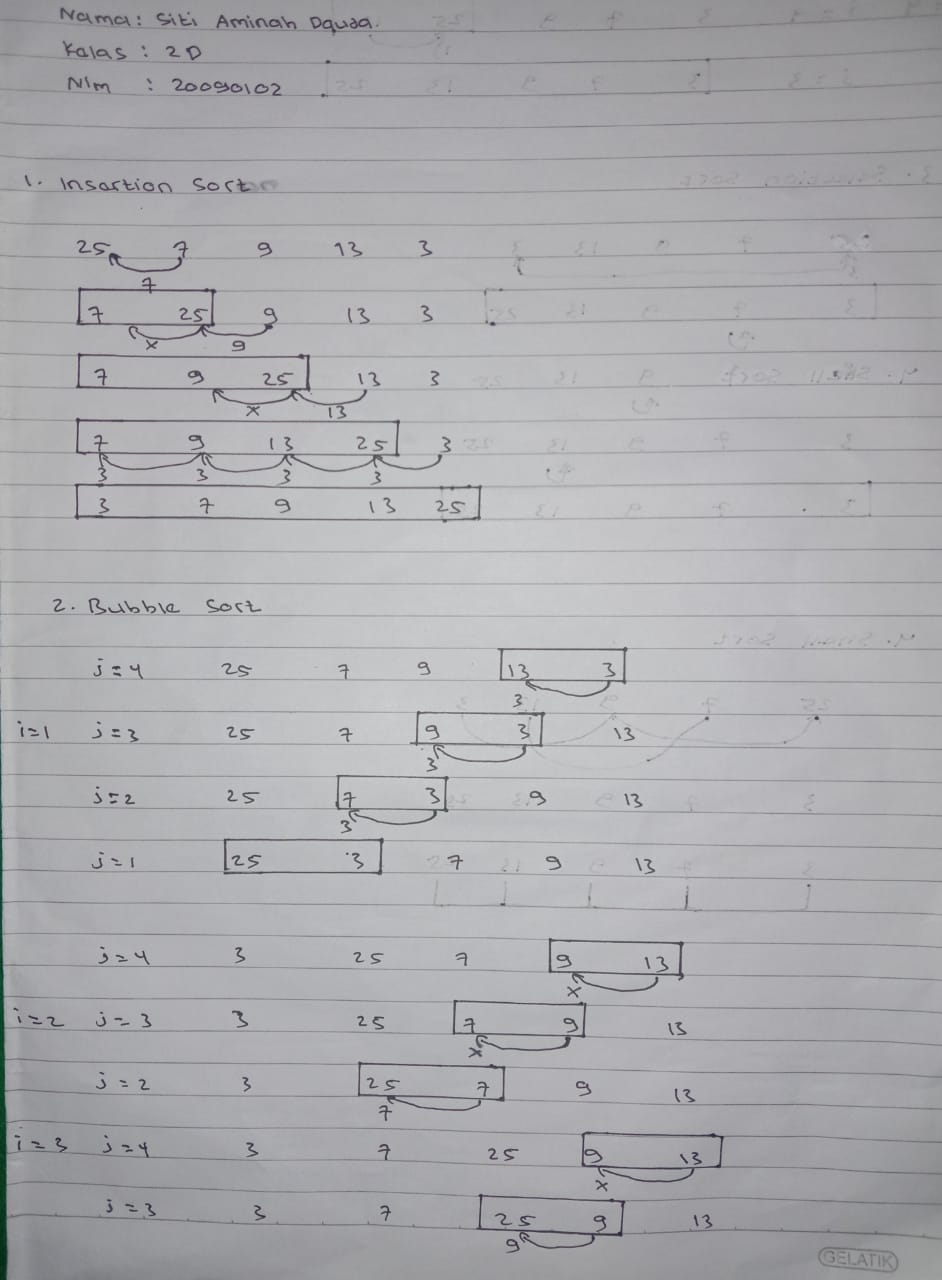 Nama : Siti Aminah Dauda.
Kalas : 2D
NIm : 20090102
1. Insartion Sort
25 7 9 13 3
7
7 25 9 13 3
x 9
7 9 25 13 3
x 13
7 9 13 25 3
3 3 3 3
3 7 9 13 25
2. Bubble Sort
j=4 25 7 9 13 3
3
i=1 j=3 25 7 9 3 13
3
j=2 25 7 3 9 13
3
j=1 25 3 7 9 13
j=4 3 25 7 9 13
x
i=2 j=3 3 25 7 9 13
x
j=2 3 25 7 9 13
7
i=3 j=4 3 7 25 9 13
x
j=3 3 7 25 9 13
9
GELATIK